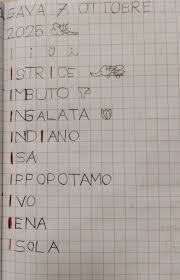 SAVA 7 OTTOBRE
2025
I i I i
ISTRICE
IMBUTO
INSALATA
INDIANO
ISA
IPPOPOTAMO
IVO
IENA
ISOLA